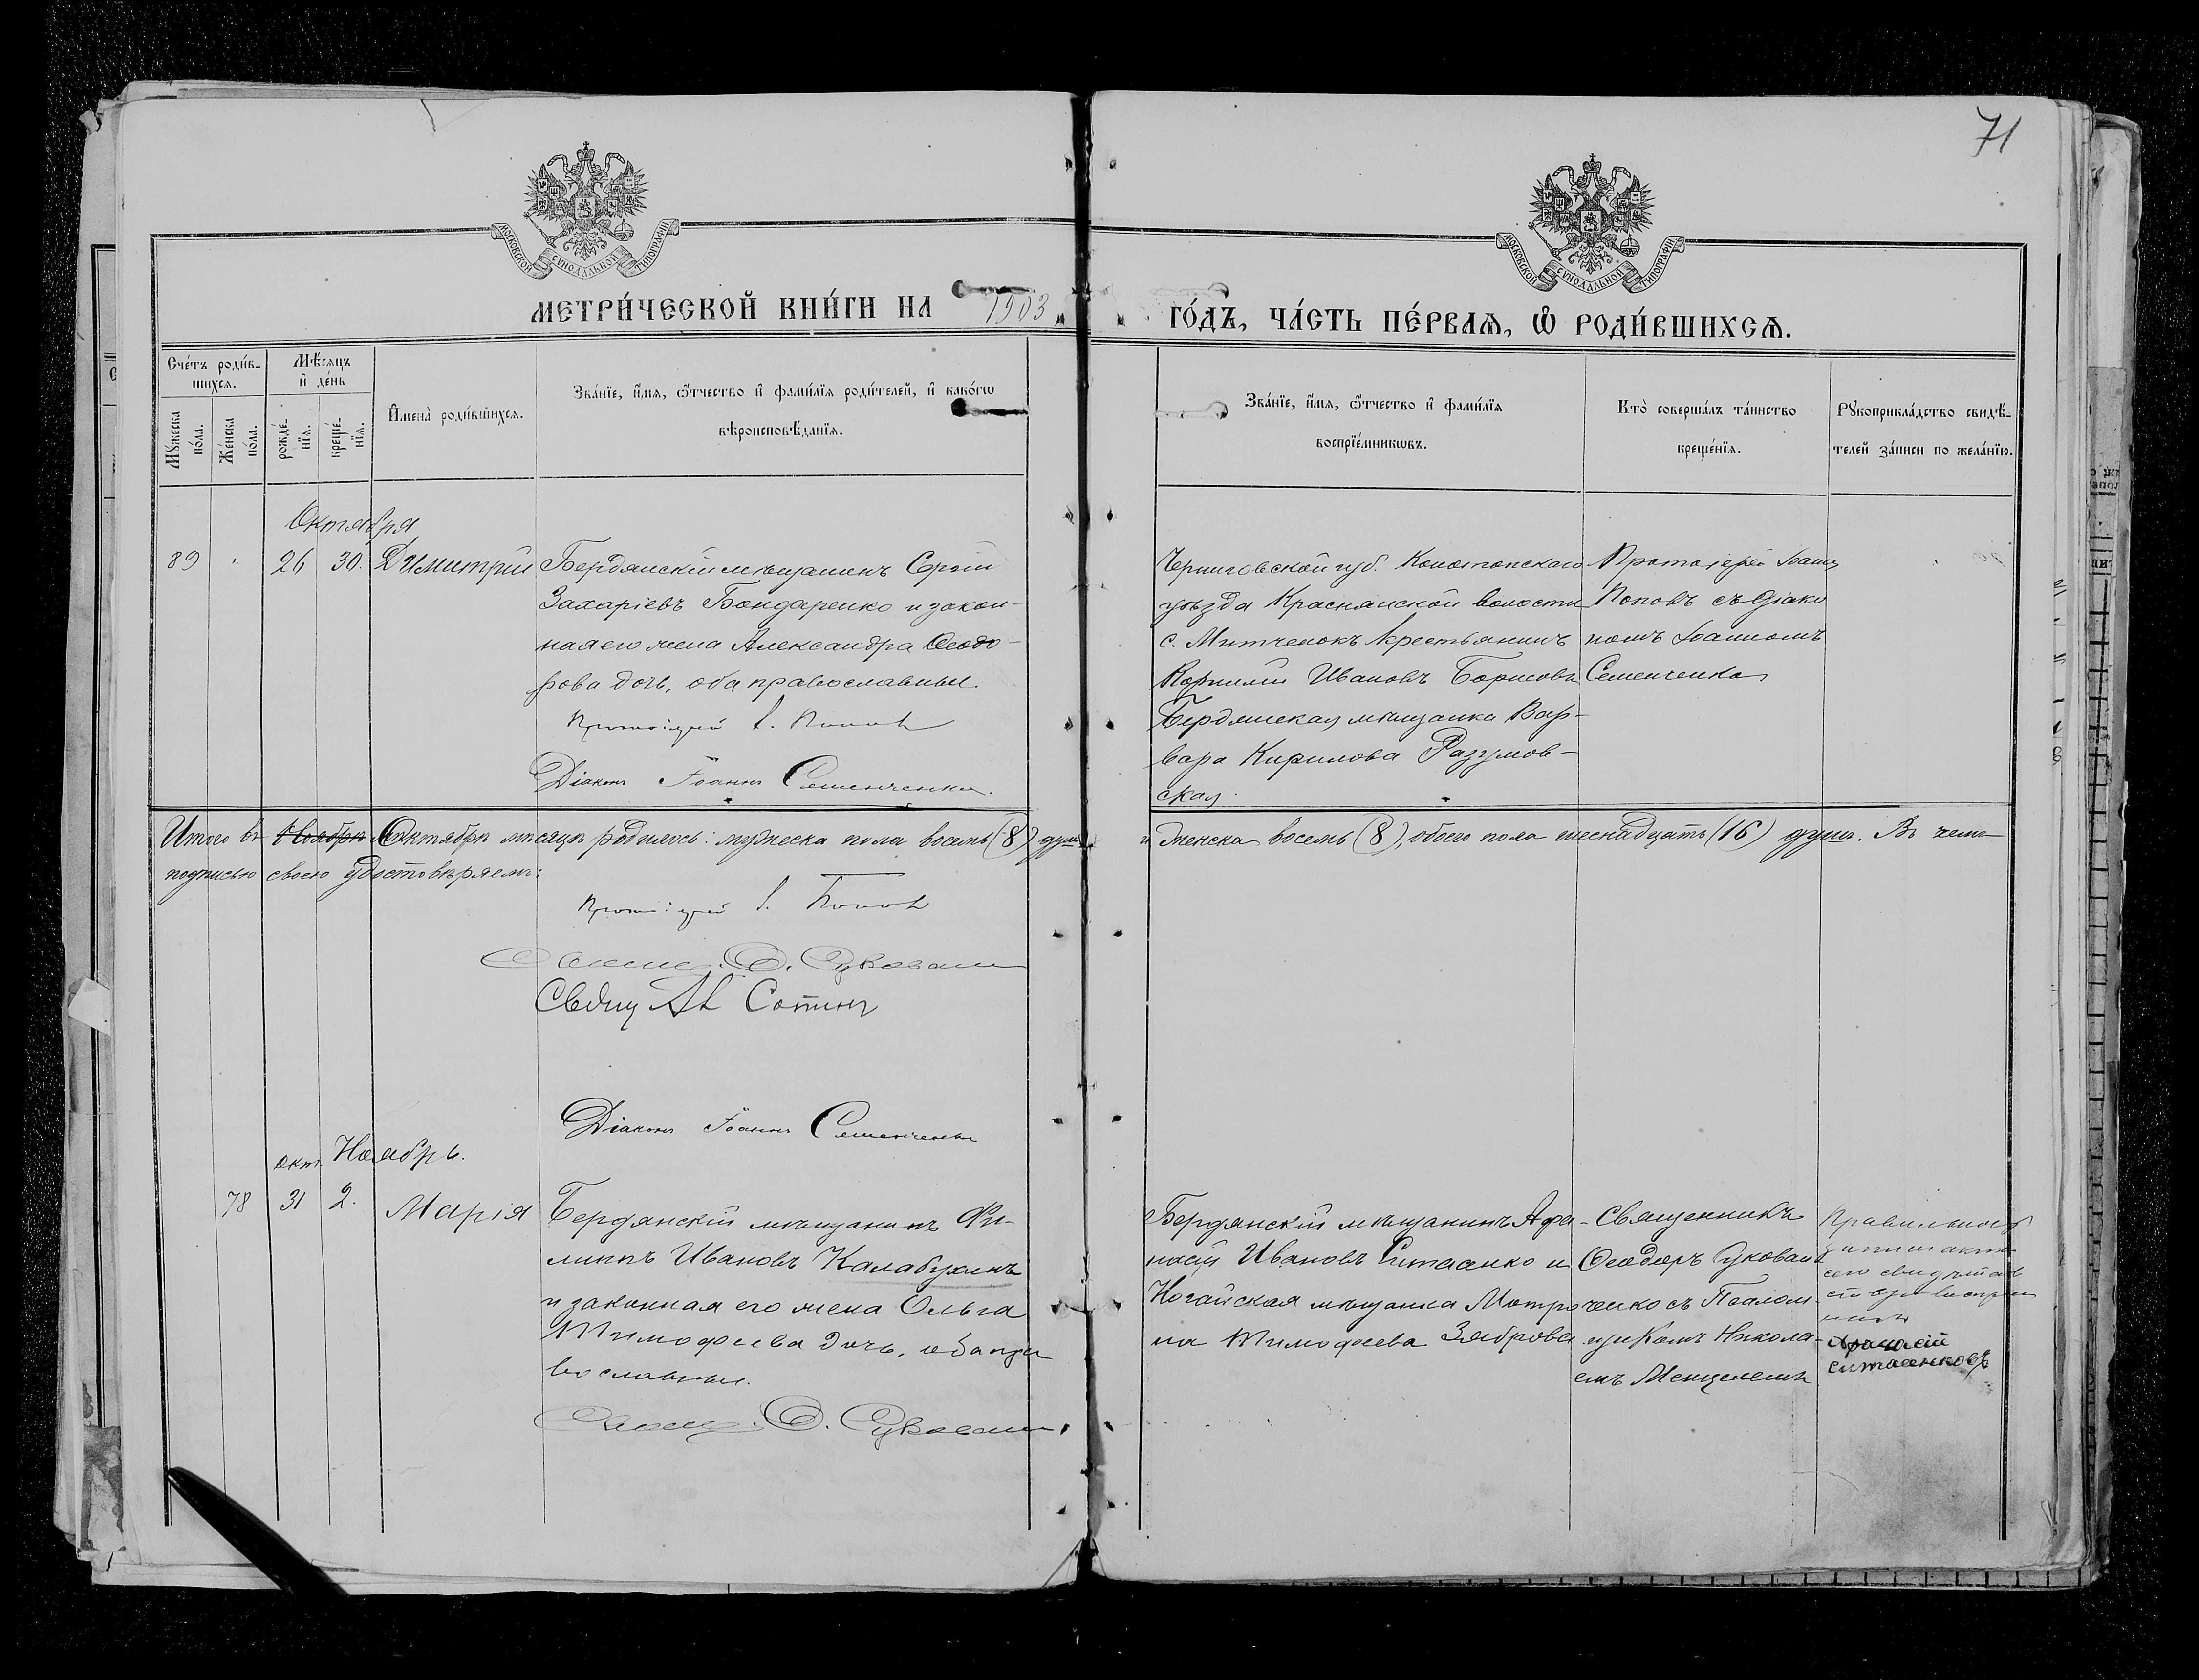 71
МОСКОВСКОЙ СѴНОДАЛЬНОЙ ТИПОГРАФІИ
МОСКОВСКОЙ СѴНОДАЛЬНОЙ ТИПОГРАФІИ
МЕТРИ́ЧЕСКОЙ КНИ́ГИ НА 1903
ГО́ДЪ, ЧА́СТЬ ПЕ́РВАѦ, Ѽ РОДИ́ВШИХСѦ.
Сче́тъ роди́в-
шихсѧ.
Мꙋ́жеска
по́ла.
Же́нска
по́ла.
Мѣ́сѧцъ
и҆ де́нь
рожде́-
нїѧ.
креще́-
нїѧ.
И҆мена̀ роди́вшихсѧ.
Зва́нїе, и҆́мѧ, ѻ҆́тчество и҆ фами́лїѧ роди́телей, и҆ како́гѡ
вѣроисповѣ́данїѧ.
Зва́нїе, и҆́мѧ, ѻ҆́тчество и҆ фами́лїѧ
воспрїе́мникѡвъ.
Кто̀ соверша́лъ та́инство
креще́нїѧ.
Рꙋкоприкла́дство свидѣ́-
телей за́писи по жела́нїю.
Октября
89 " 26 30. Димитрій
Бердянскій мѣщанинъ Сергій
Захаріевъ Бондаренко и закон-
ная его жена Александра Ѳеодо-
рова дочь, оба православные.
Протоіерей І. Поповъ
Діаконъ Іоаннъ Семенченко.
Черниговской губ. Конотопскаго
уѣзда Краснянской волости
с. Митченокъ крестьянинъ
Корнилій Ивановъ Борисовъ
Бердянская мѣщанка Вар-
вара Кирилова Разумов-
ская.
Протоіерей Іоаннъ
Поповъ съ Діако
номъ Іоанномъ
Семенченко
Итого въ Ноябрѣ Октябрѣ мѣсяцѣ родилось: мужеска пола восемь (8) душъ и женска восемь (8), обоего пола шеснадцать (16) душъ. Въ чемъ
подписью своею удостовѣряемъ:
Протоіерей І. Поповъ
Ѳ. Суковаты
Свящ
Діаконъ Іоаннъ Семенченко
окт. Ноябрь.
78 31 2. Марія
Бердянскій мѣщанинъ Фи-
липпъ Ивановъ Калабухинъ
и законная его жена Ольга
Тимофеева дочь, оба пра
вославные.
Бердянскій мѣщанинъ Афа-
насій Ивановъ Ситаенко и
Ногайская мѣщанка Матро
на Тимофеева Зяброва
Священникъ
Ѳеодоръ Суковат
ченко съ Псалом-
щикомъ Никола-
емъ
Правильность
записи акта
сего
Афанасій
Ситаенковъ